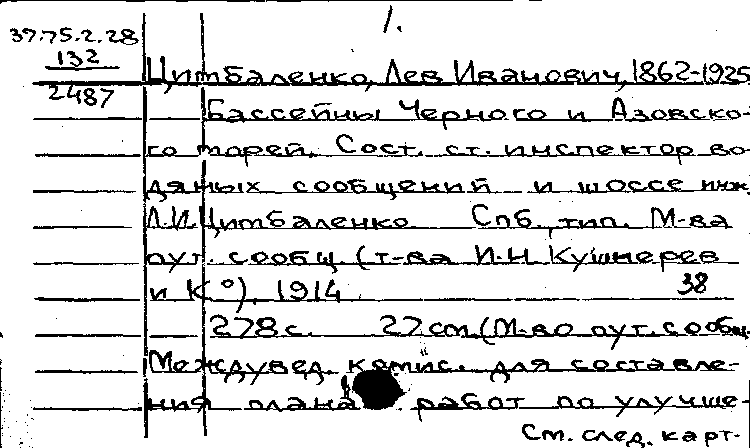 1.
37.75.2.28
132
2487
Цимбаленко, Лев Иванович, 1862-1925
Бассейны Черного и Азовско-
го морей. Сост. ст. инспектор во-
дяных сообщений и шоссе инж.
Л.И. Цимбаленко Спб., тип. М-ва
пут. сообщ. (т-ва И.Н. Кушнерев
и К°), 1914
38
278 с. 27 см. (М-во пут. сообщ.
Междувед. комис. для составле-
ния плана работ по улучше-
См. след. карт.